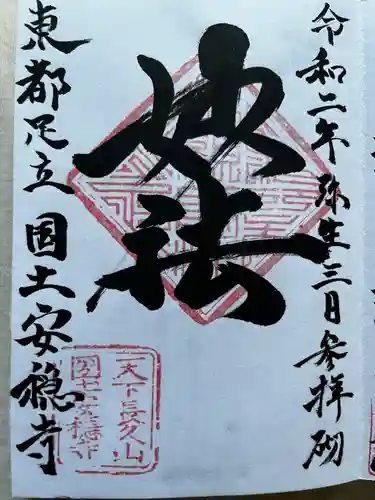 令和二年弥生三日参拝砌
妙法
東都足立国土安穏寺
天下長久山
国土安穏寺